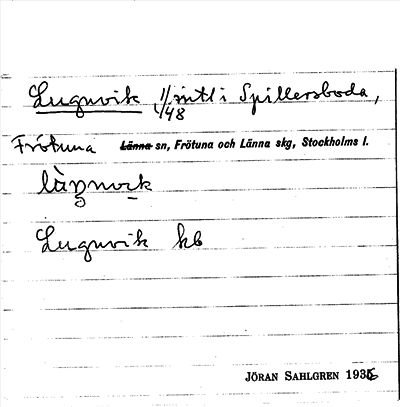 Lugnvik 1/48 mtl i Spillersboda,
Frötuna Länna sn, Frötuna och Länna skg, Stockholms l.
Lugnvik kb
JÖRAN SAHLGREN 1936